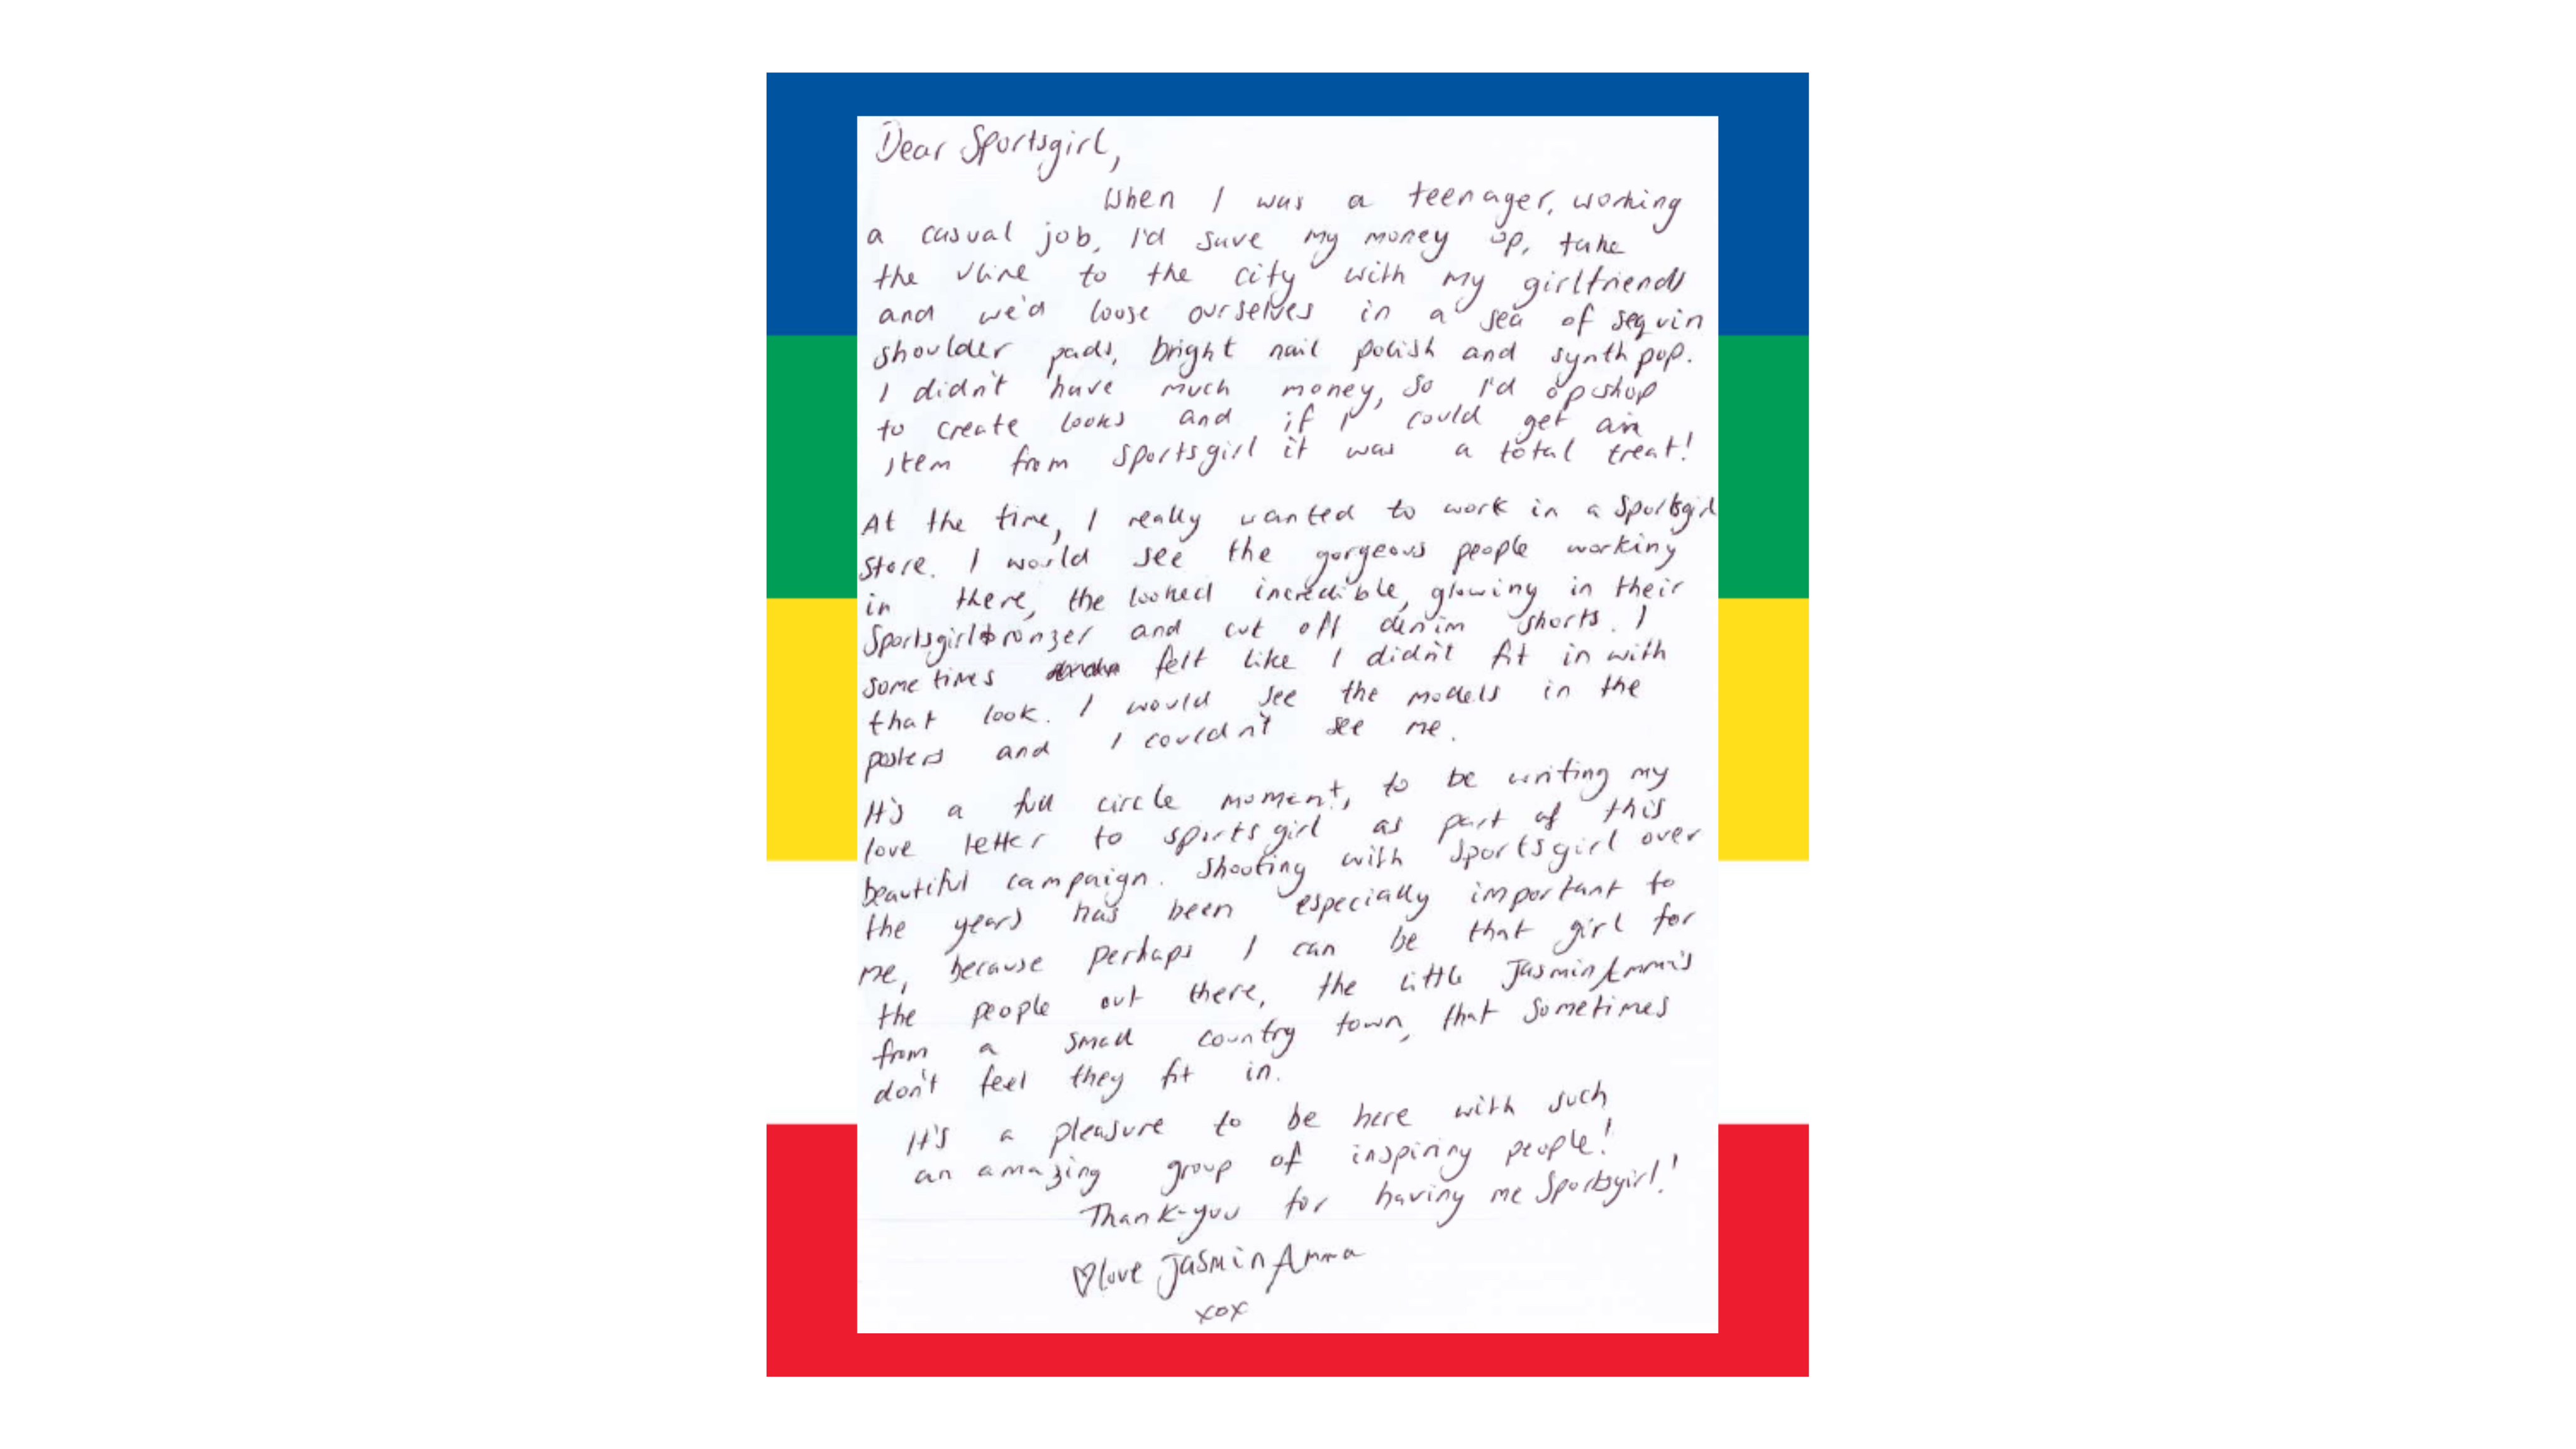 Dear Sportsgirl,
When I was a teenager, working
a casual job, I'd save my money up, take
the vline to the city with my girlfriends
and we'd loose ourselves in a sea of sequin
shoulder pads, bright nail polish and synth pop.
I didn't have much money, so I'd opshop
to create looks and if I could get an
item from Sportsgirl it was a total treat!
At the time, I really wanted to work in a Sportsgirl
store. I would see the gorgeous people working
in there, the looked incredible, glowing in their
Sportsgirl bronzer and cut off denim shorts. I
sometimes felt like I didn't fit in with
that look. I would see the models in the
posters and I couldn't see me.
It's a full circle moment, to be writing my
love letter to sportsgirl as part of this
beautiful campaign. Shooting with Sportsgirl over
the years has been especially important to
me, because perhaps I can be that girl for
the people out there, the little Jasmin Emma's
from a small country town, that sometimes
don't feel they fit in.
It's a pleasure to be here with such
an amazing group of inspiring people!
Thank-you for having me Sportsgirl!
♡love Jasmin Emma
xox